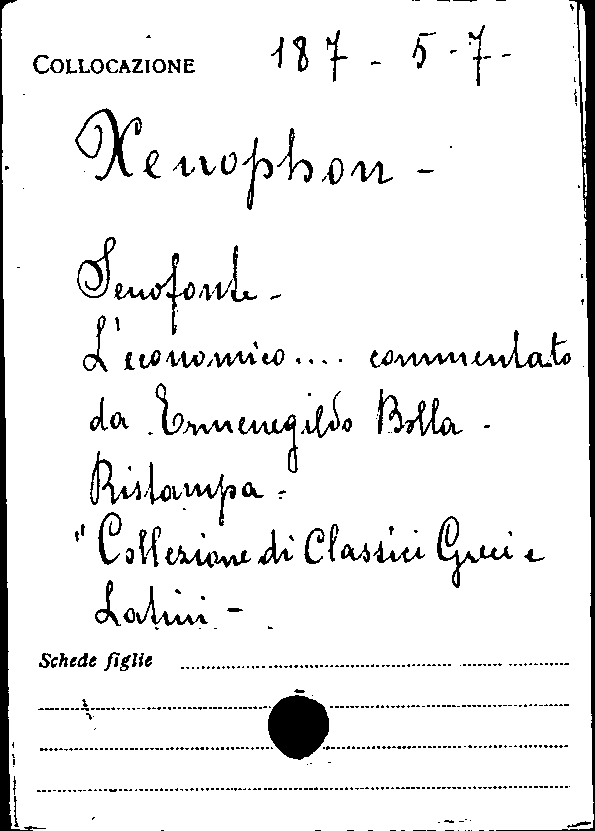 COLLOCAZIONE 187 - 5 - 7 -
Xenophon -
Senofonte -
L'economico .... commentato
da Ermenegildo Bolla -
Ristampa -
"Collezione di Classici Greci e
Latini -
Schede figlie